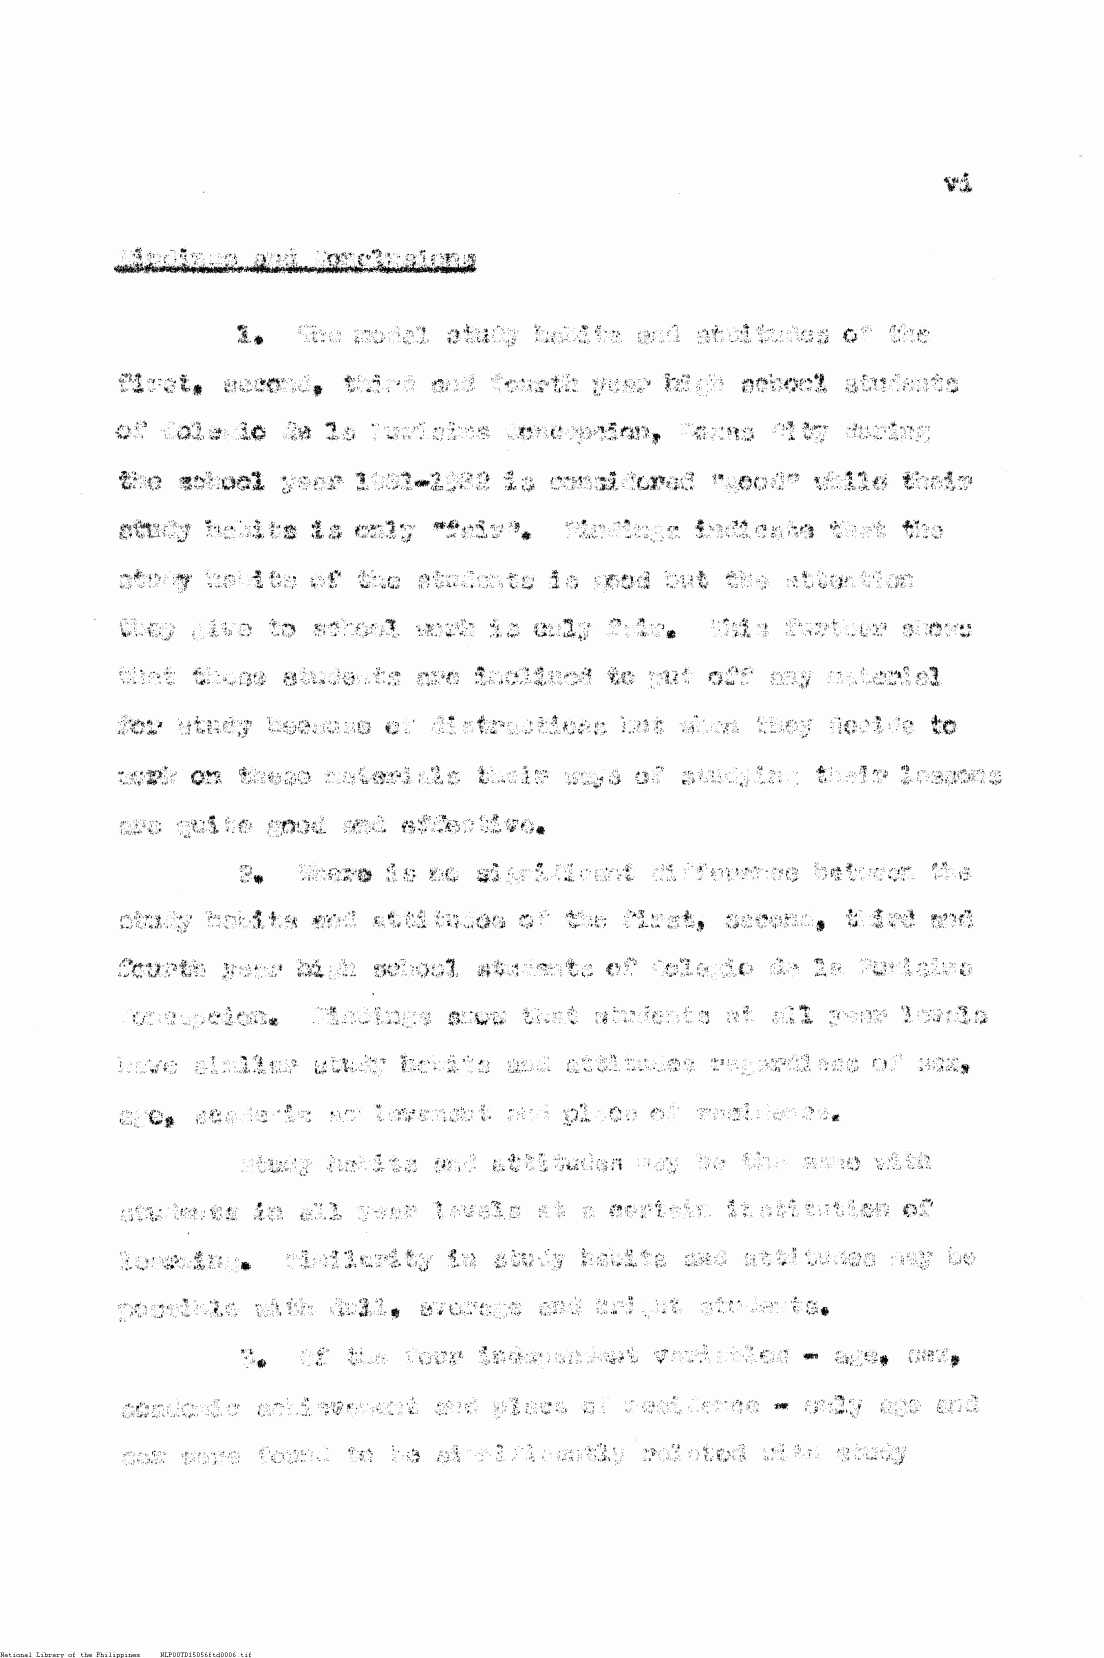 vi
Findings and Conclusions
1. The modal study habits and attitudes of the
first, second, third and fourth year high school students
of Colegio de la Purisima Concepcion, Roxas City during
the school year 1981-1982 is considered "good" while their
study habits is only "fair". Findings indicate that the
study habits of the students is good but the attention
they give to school work is only fair. This further shows
that these students are inclined to put off any material
for study because of distractions but when they decide to
work on these materials their ways of studying their lessons
are quite good and effective.
2. There is no significant difference between the
study habits and attitudes of the first, second, third and
fourth year high school students of Colegio de la Purisima
Concepcion. Findings show that students at all year levels
have similar study habits and attitudes regardless of sex,
age, academic achievement and place of residence.
Study habits and attitudes may be the same with
students in all year levels at a certain institution of
learning. Similarity in study habits and attitudes may be
possible with dull, average and bright students.
3. Of the four independent variables - age, sex,
academic achievement and place of residence - only age and
sex were found to be significantly related with study
National Library of the Philippines NLP00TD15056ftd0006.tif